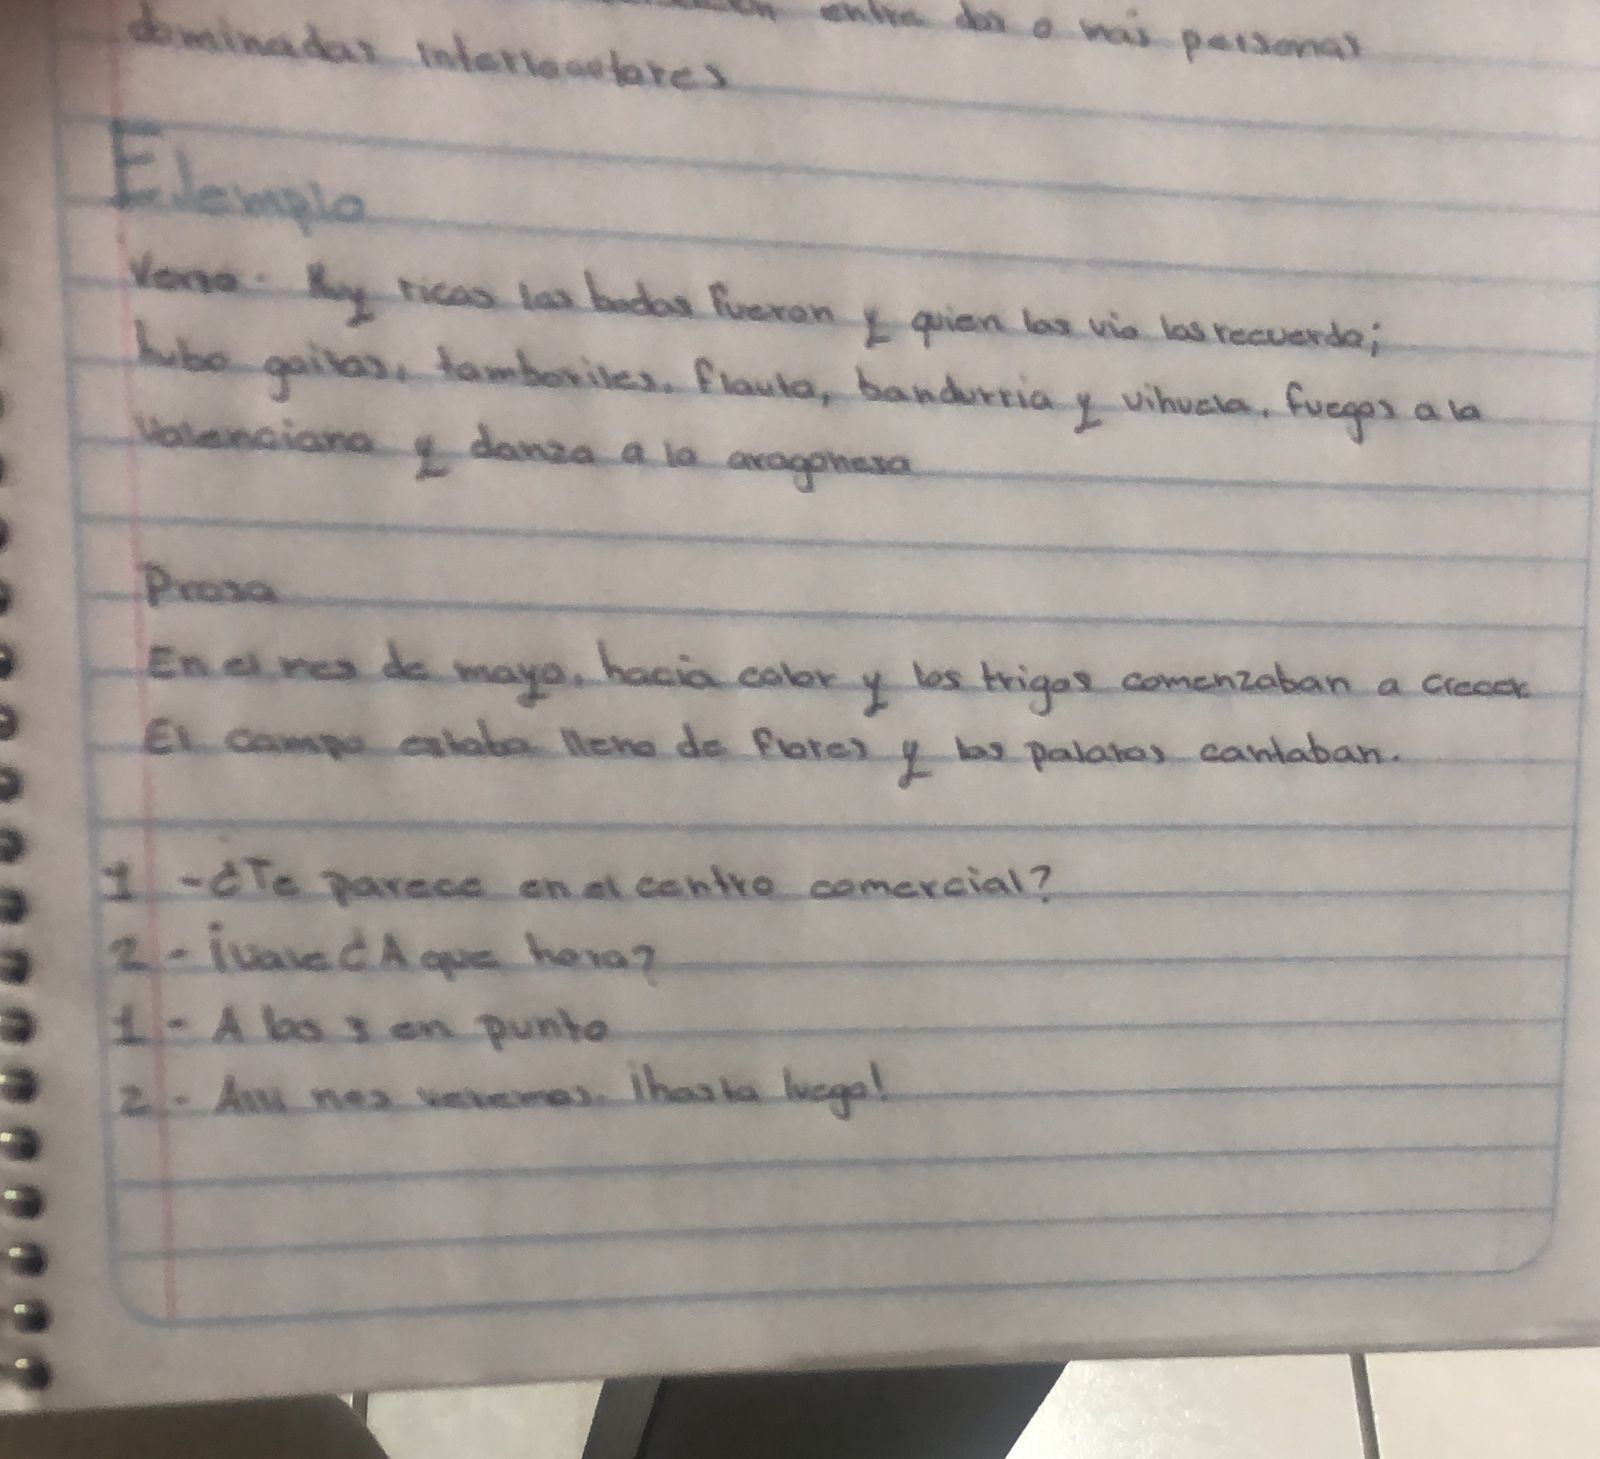 entre dos o más personas
dominadas interlocutores
Ejemplo
Verso. Muy ricas las bodas fueron y quien las vio las recuerda;
hubo gaitas, tamboriles, flauta, bandurria y vihuela, fuegos a la
Valenciana y danza a la aragonesa
Prosa
En el mes de mayo, hacia calor y los trigos comenzaban a crecer.
El campo estaba lleno de flores y los pajaros cantaban.
1 - ¿Te parece en el centro comercial?
2 - ¡vale ¿A que hora?
1 - A las 3 en punto
2 - Alli nos veremos. ¡hasta luego!